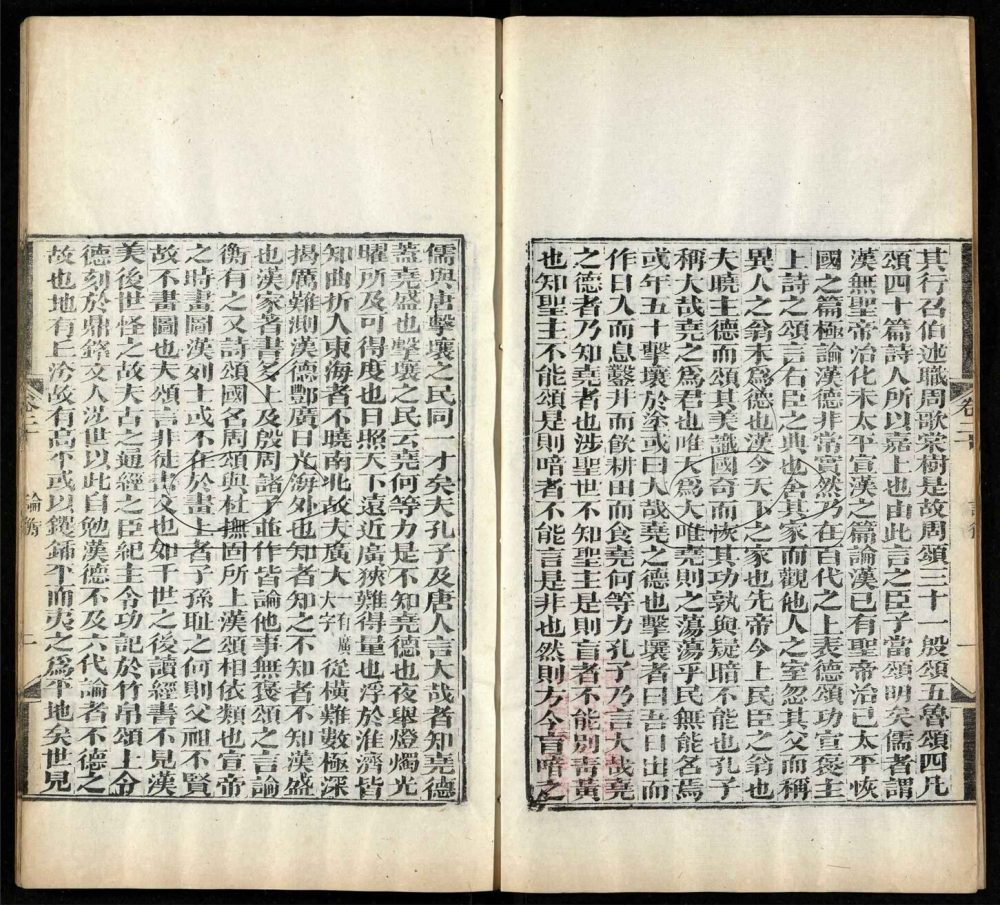 其行召伯述職周歌棠樹是故周頌三十一殷頌五魯頌四凡
頌四十篇詩人所以嘉上也由此言之臣子當頌明矣儒者謂
漢無聖帝治化未太平宣漢之篇論漢已有聖帝治已太平恢
國之篇極論漢德非常實然乃在百代之上表德頌功宣褒主
上詩之頌言右臣之典也舍其家而觀他人之室忽其父而稱
異人之翁未爲德也漢今天下之家也先帝今上民臣之翁也
夫曉主德而頌其美識國奇而恢其功孰與疑暗不能也孔子
稱大哉堯之爲君也唯天爲大唯堯則之蕩蕩乎民無能名焉
或年五十擊壤於塗或曰大哉堯之德也擊壤者曰吾日出而
作日入而息鑿井而飲耕田而食堯何等力孔子乃言大哉堯
之德者乃知堯者也涉聖世不知聖主是則盲者不能別青黃
也知聖主不能頌是則喑者不能言是非也然則方今盲喑之
卷二
一
儒與唐擊壤之民同一才矣夫孔子及唐人言大哉者知堯德
蓋堯盛也擊壤之民云堯何等力是不知堯德也夜舉燈燭光
曜所及可得度也日照天下遠近廣狹難得量也浮於淮濟皆
知曲折入東海者不曉南北故夫廣大一有廣大字從橫難數極深
揭厲難測漢德酆廣日光海外也知者知之不知者不知漢盛
也漢家著書多上及殷周諸子並作皆論他事無褒頌之言論
衡有之又詩頌國名周頌與杜撫固所上漢頌相依類也宣帝
之時畫圖漢列士或不在於畫上者子孫恥之何則父祖不賢
故不畫圖也夫頌言非徒畫文也如千世之後讀經書不見漢
美後世怪之故夫古之通經之臣紀主令功記於竹帛頌上令
德刻於鼎銘文人涉世以此自勉漢德不及六代論者不德之
故也地有丘洿故有高平或以钁鍤平而夷之爲平地矣世見
卷二
論衡